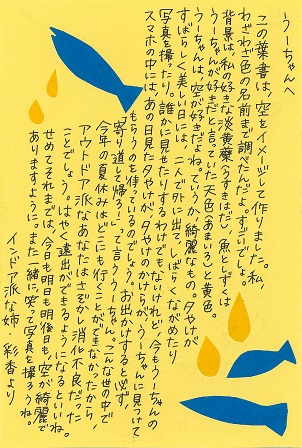 うーちゃんへ
この葉書は、空をイメージして作りました。私、
わざわざ色の名前まで調べたんだよ。すごいでしょ。
背景は、私の好きな淡黄蘗(うすきはだ)、魚としずくは
うーちゃんが好きだと言っていた天色(あまいろ)と黄色。
うーちゃんは、空が好きだよね。ていうか、綺麗なもの。夕やけが
すばらしく美しい日には、二人で外に出て、しばらくながめたり
写真を撮ったり。誰かに見せたりするわけでもないけれど、今もうーちゃんの
スマホの中には、あの日見た夕やけが、夕やけのかけらが、うーちゃんに見つけて
もらうのを待っているのでしょう。お出かけすると必ず
「寄り道して帰ろー」って言ううーちゃん。こんな世の中で
今年の夏休みはどこにも行くことができなかったから、
アウトドア派なあなたはさぞかし消化不良だった
ことでしょう。はやく遠出ができるようになるといいね。
せめてそれまでは、今日も明日も明後日も、空が綺麗で
ありますように。また一緒に、笑って写真を撮ろうね。
インドア派な姉・彩香より